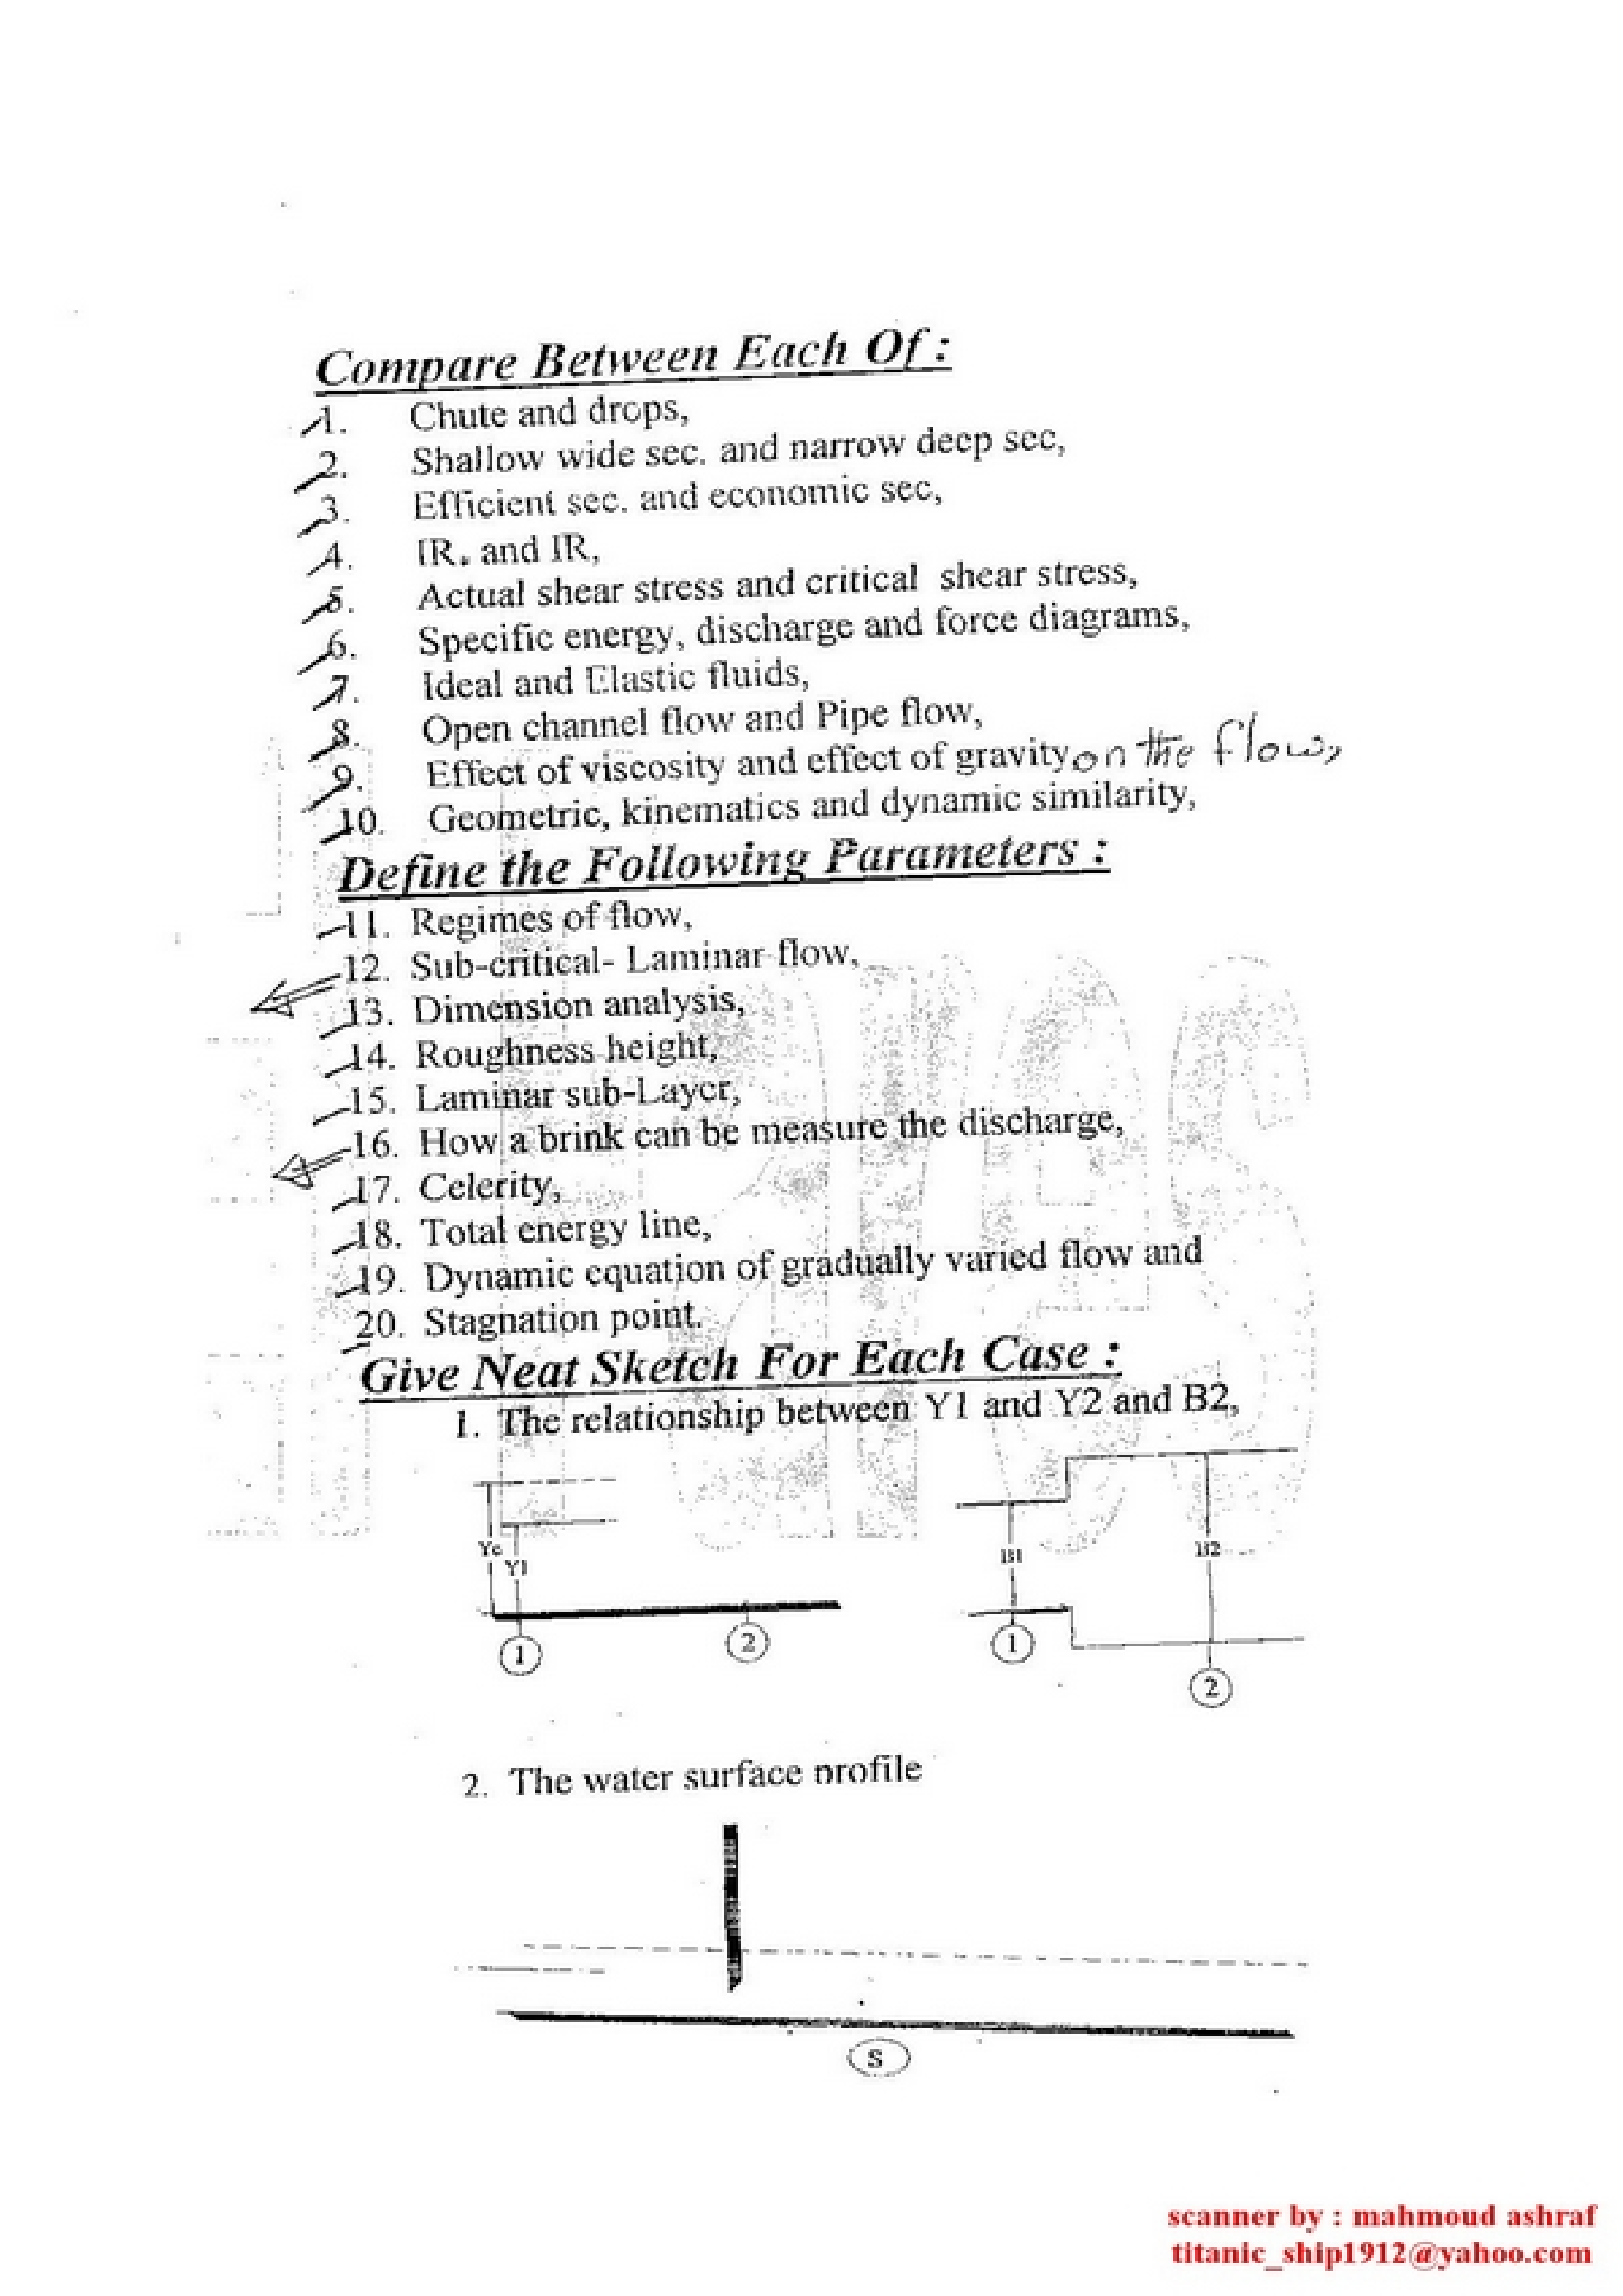 Compare Between Each Of :
1. Chute and drops,
2. Shallow wide sec. and narrow deep sec,
3. Efficient sec. and economic sec,
4. IRₑ and IR,
5. Actual shear stress and critical shear stress,
6. Specific energy, discharge and force diagrams,
7. Ideal and Elastic fluids,
8. Open channel flow and Pipe flow,
9. Effect of viscosity and effect of gravity on the flow,
10. Geometric, kinematics and dynamic similarity,
Define the Following Parameters :
11. Regimes of flow,
12. Sub-critical- Laminar flow,
13. Dimension analysis,
14. Roughness height,
15. Laminar sub-Layer,
16. How a brink can be measure the discharge,
17. Celerity,
18. Total energy line,
19. Dynamic equation of gradually varied flow and
20. Stagnation point.
Give Neat Sketch For Each Case :
1. The relationship between Y1 and Y2 and B2,
Yc Y1 B1 B2
1 2 1 2
2. The water surface profile
S
scanner by : mahmoud ashraf
titanic_ship1912@yahoo.com